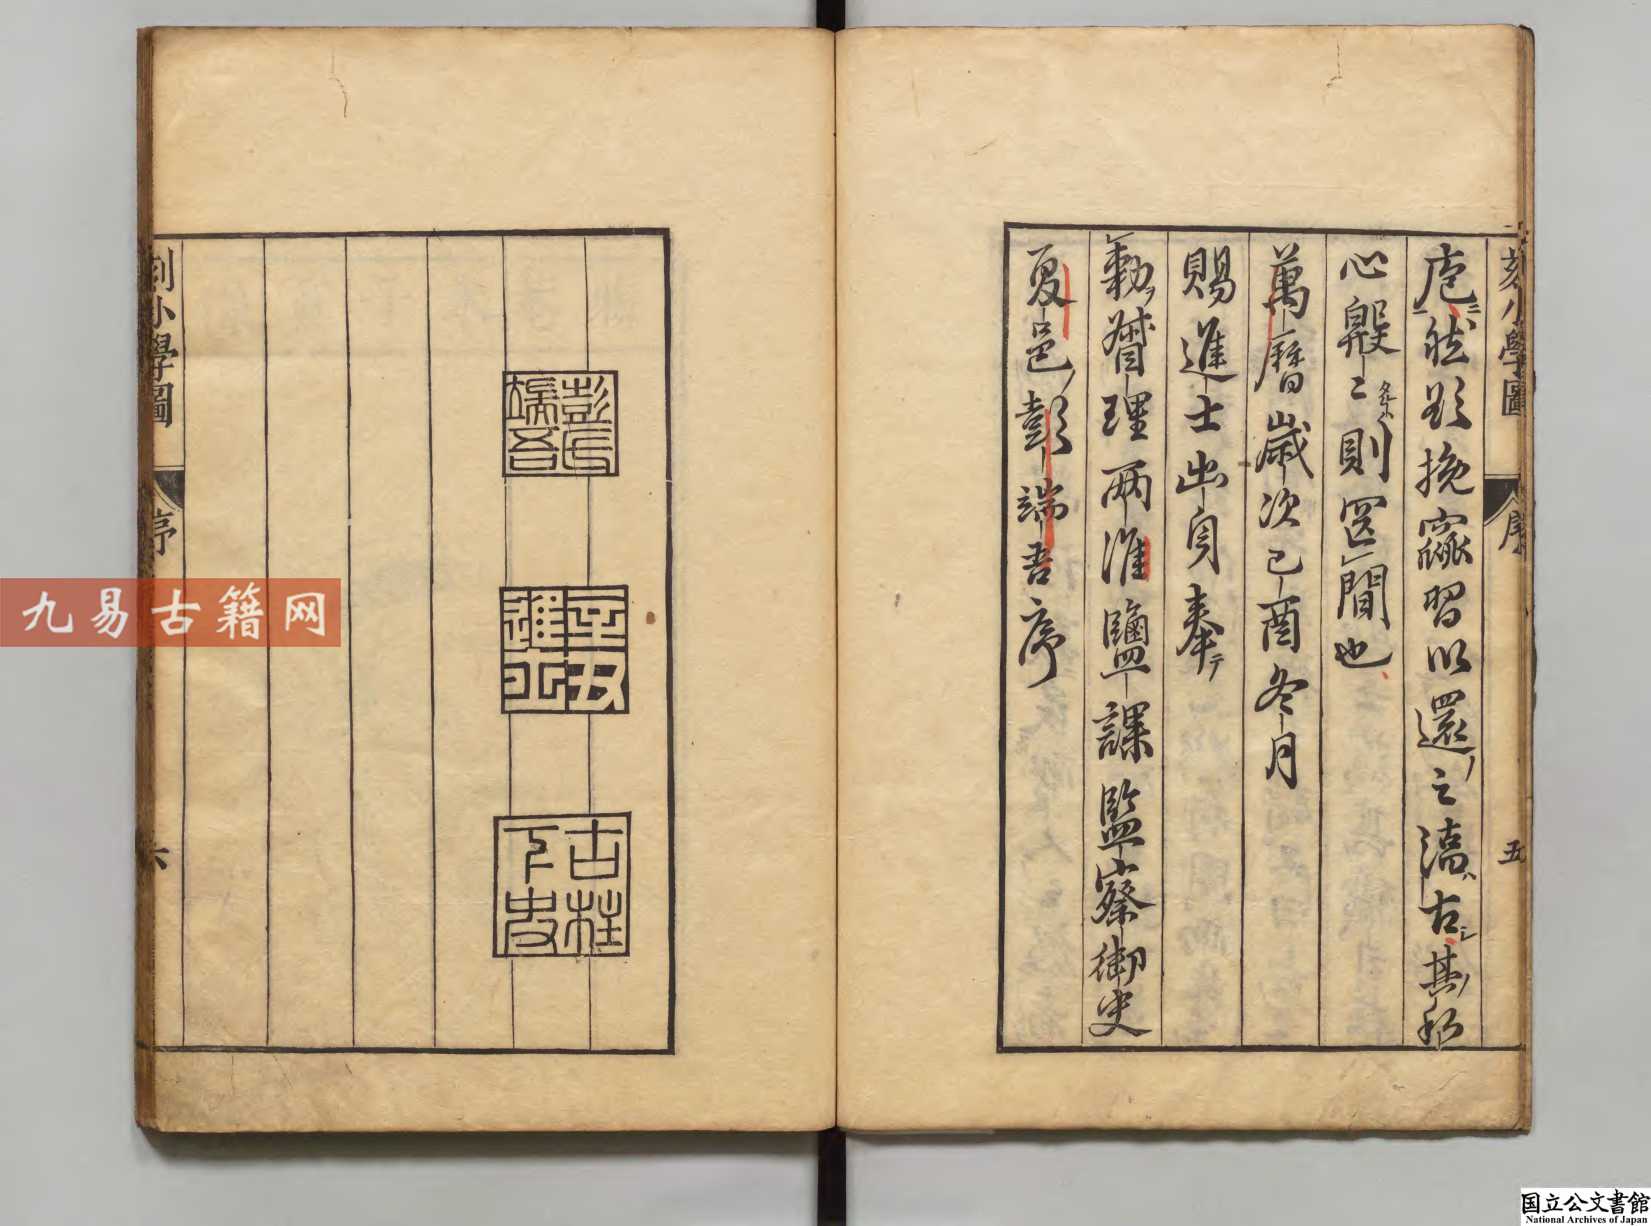 刻小學圖
序
五
庬然欲挽窳習以還之淳古其私
心殷〻則篋間也
萬曆歲次己酉冬月
賜進士出身奉
勅督理兩淮鹽課監察御史
夏邑彭端吾序
彭氏端吾
辛丑進士
古柱下史
刻小學圖
序
六
九易古籍网
国立公文書館
National Archives of Japan